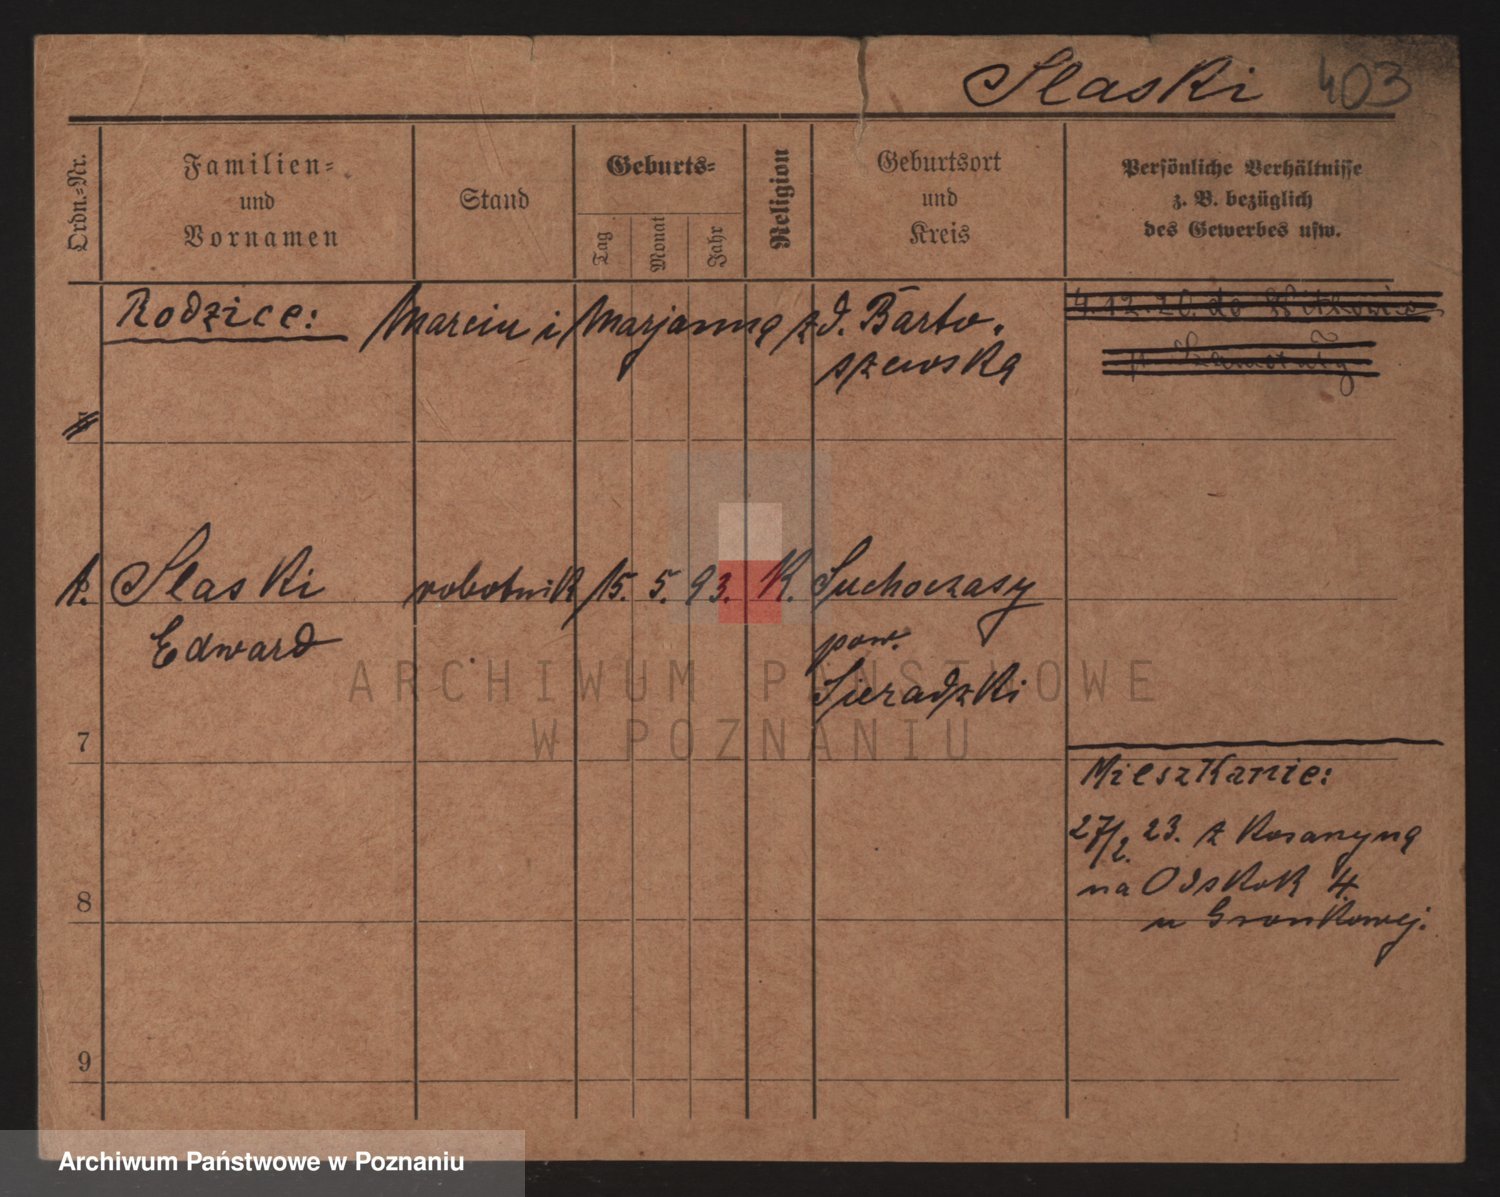 Slaski 403
Ordn.=Nr.
Familien=
und
Vornamen
Stand
Geburts=
Tag
Monat
Jahr
Religion
Geburtsort
und
Kreis
Persönliche Verhältnisse
z. B. bezüglich
des Gewerbes usw.
Rodzice: Marcin i Marjanna zd. Barto.
szewska
4.12.20. do
p. Szamotuły
1. Slaski robotnik 15. 5. 93. K. Suchoczasy
Edward pow.
Sieradzki
7
Mieszkanie:
27/2. 23. z
na Odskok 4.
u Gronkowej.
8
9
ARCHIWUM PAŃSTWOWE
W POZNANIU
Archiwum Państwowe w Poznaniu